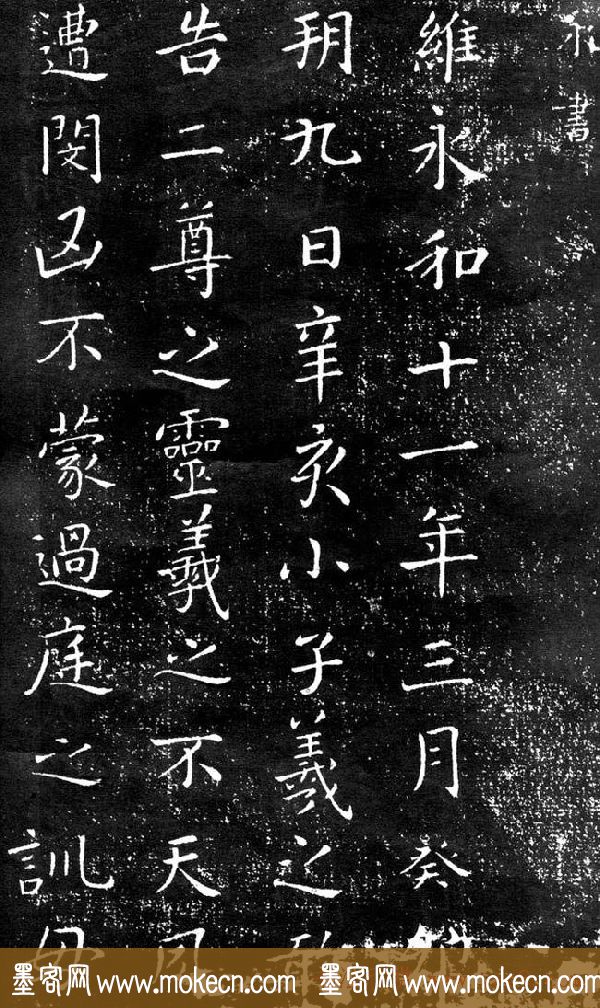 書
維永和十一年三月癸
朔九日辛亥小子羲之
告二尊之靈羲之不天
遭閔凶不蒙過庭之訓
墨客网 www.mokecn.com 墨客网 www.mokecn.com